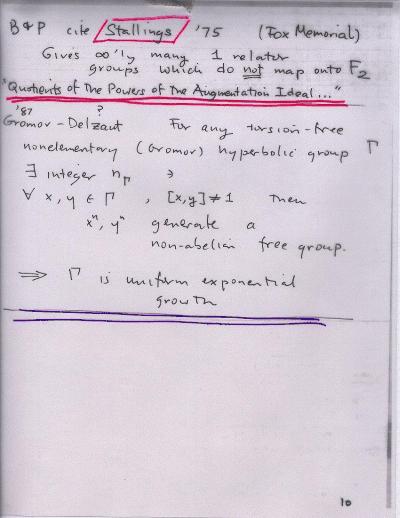 B & P cite Stallings '75 (Fox Memorial)
Gives ∞'ly many 1 relator
groups which do not map onto F₂
"Quotients of The Powers of The Augmentation Ideal..."
'87 ?
Gromov - Delzant For any torsion-free
nonelementary (Gromov) hyperbolic group Γ
∃ integer n_Γ ∋
∀ x, y ∈ Γ , [x,y] ≠ 1 then
xⁿ, yⁿ generate a
non-abelian free group.
⟹ Γ is uniform exponential
growth
10